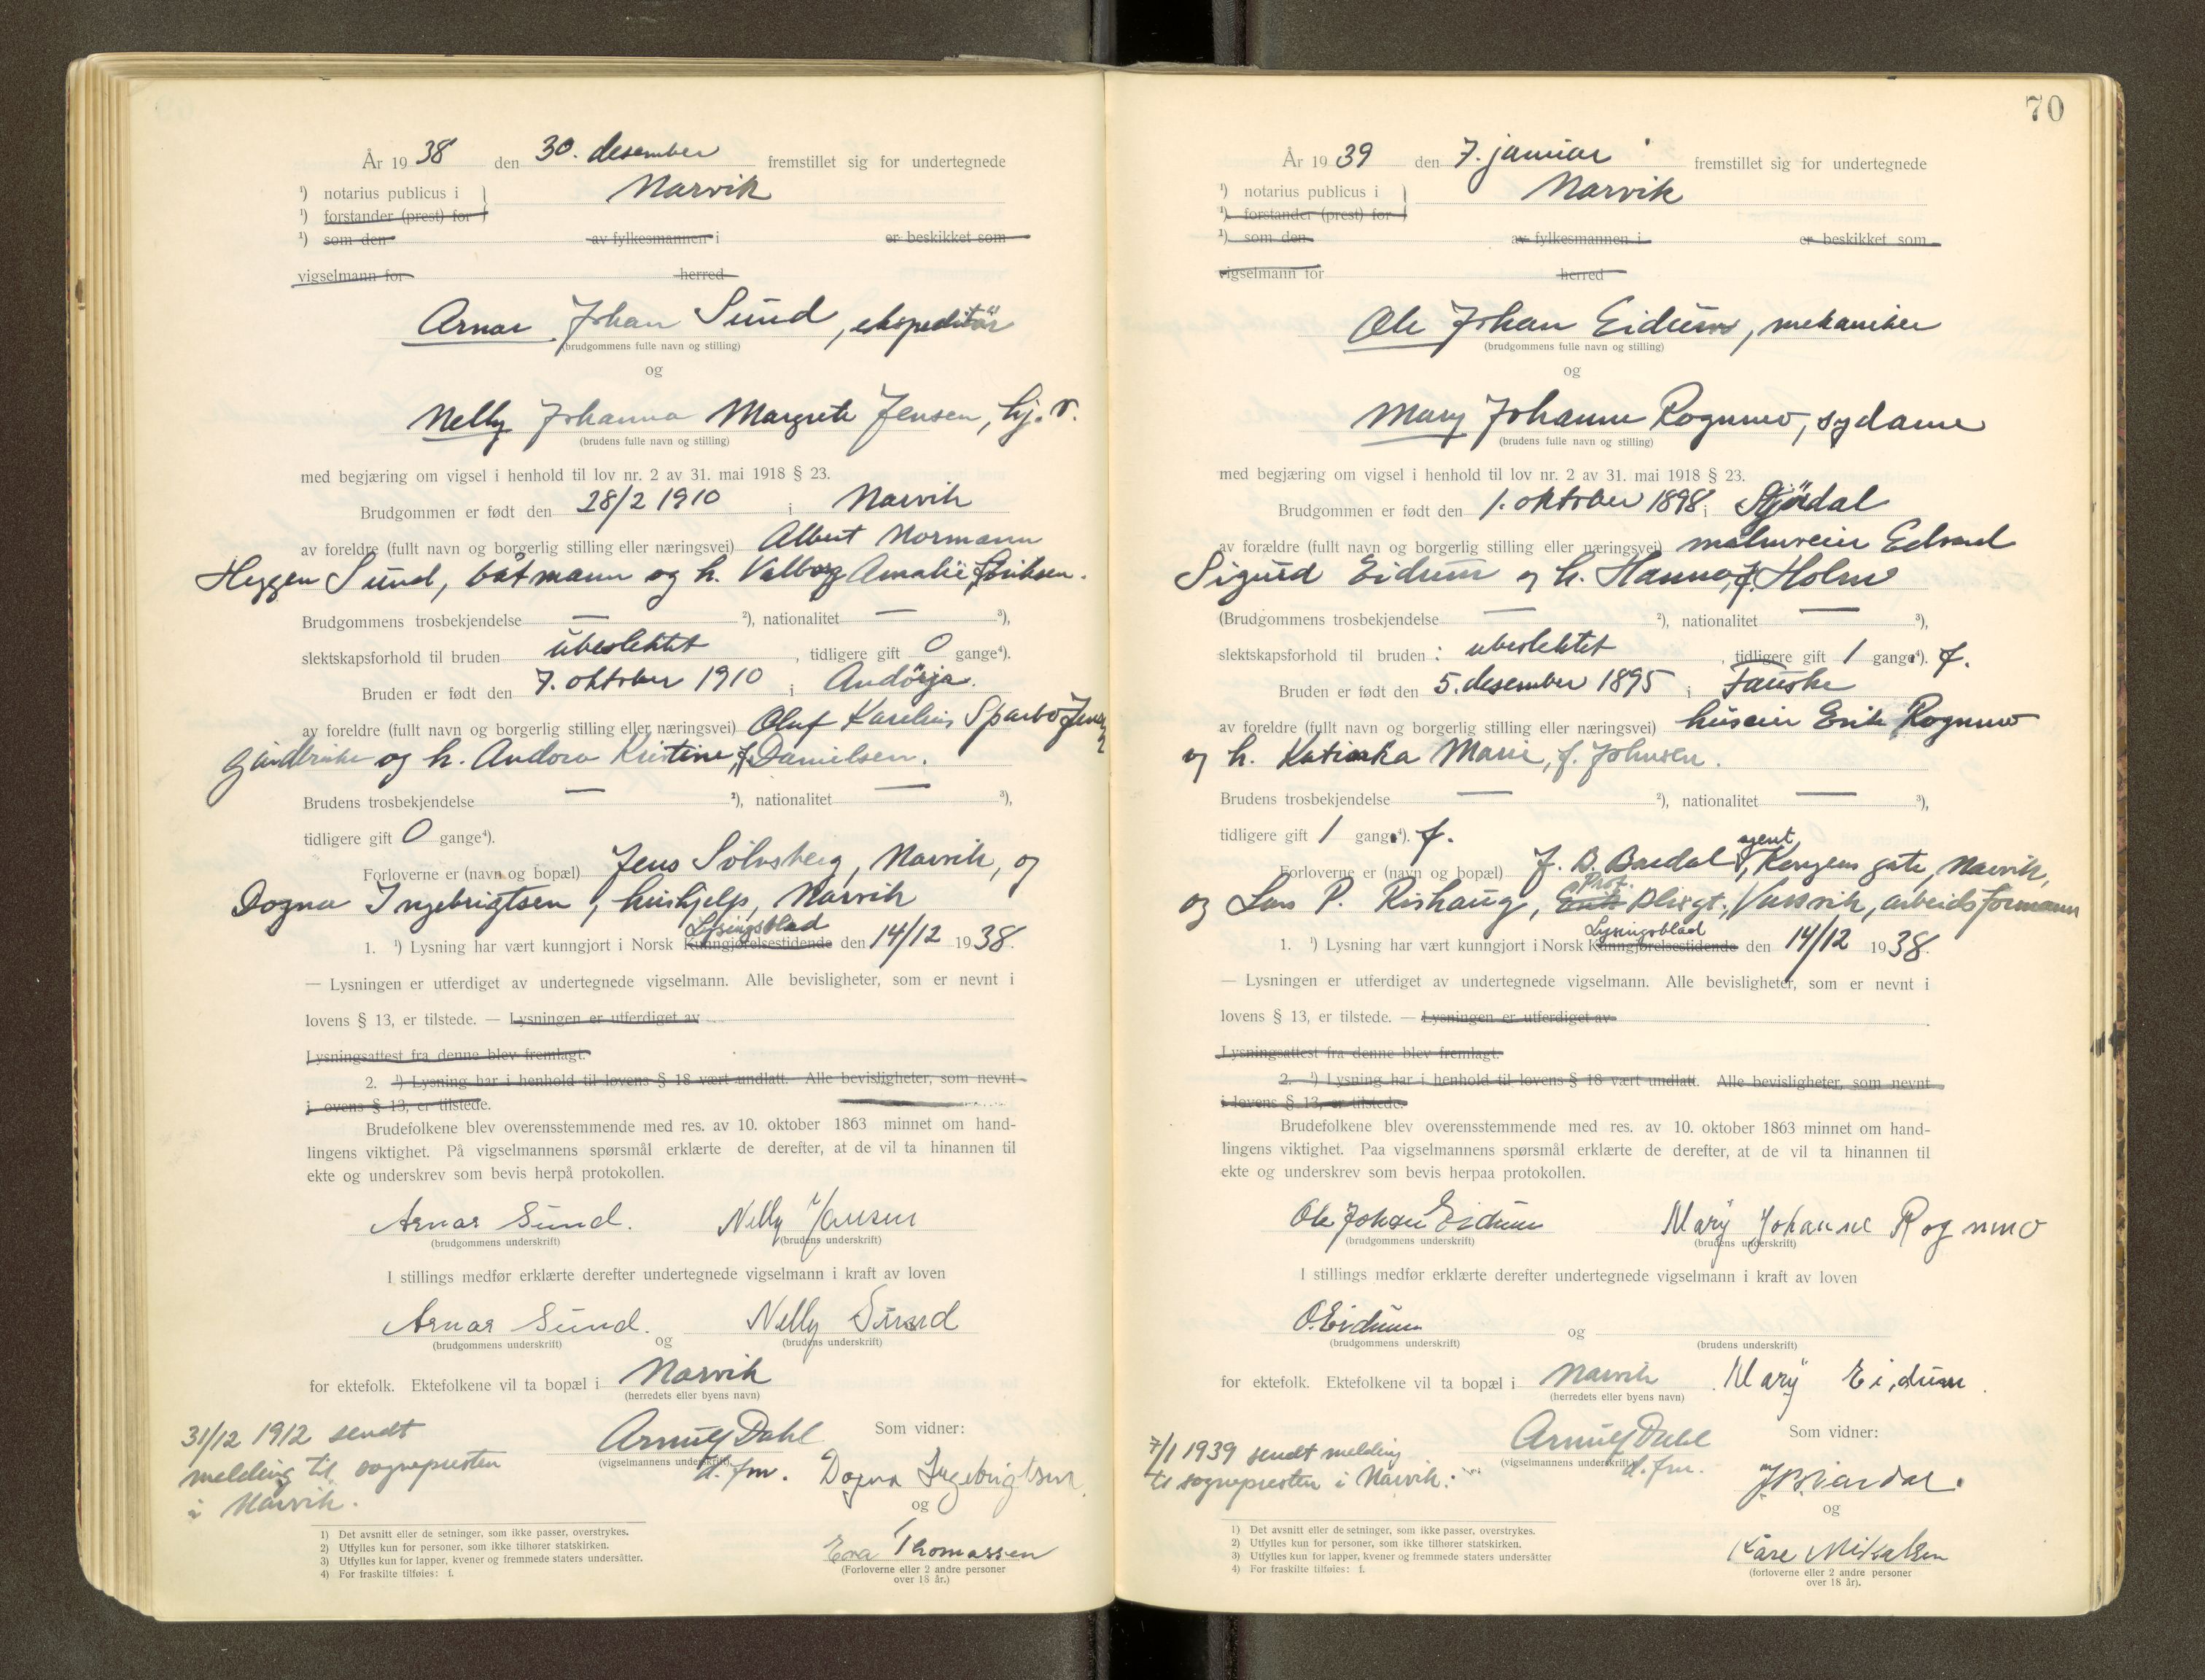 År 1938 den 30. desember fremstillet sig for undertegnede
¹) notarius publicus i Narvik
¹) forstander (prest) for
¹) som den av fylkesmannen i er beskikket som
vigselmann for herred
Arnar Johan Sund, ekspeditör
(brudgommens fulle navn og stilling)
og
Nelly Johanna Margrete Jensen, hj. v.
(brudens fulle navn og stilling)
med begjæring om vigsel i henhold til lov nr. 2 av 31. mai 1918 § 23.
Brudgommen er født den 28/2 1910 i Narvik
av foreldre (fullt navn og borgerlig stilling eller næringsvei) Albert Normann
Heggen Sund, båtmann og h. Valborg Amalie f. Eriksen.
Brudgommens trosbekjendelse — ²), nationalitet — ³),
slektskapsforhold til bruden ubeslektet, tidligere gift 0 gange⁴).
Bruden er født den 7. oktober 1910 i Andörja.
av foreldre (fullt navn og borgerlig stilling eller næringsvei) Oluf Karelius Sparbo Jensen
gårdbruker og h. Andora Kristine, f. Danielsen.
Brudens trosbekjendelse — ²), nationalitet — ³),
tidligere gift 0 gange⁴).
Forloverne er (navn og bopæl) Jens Solvsberg, Narvik, og
Dogna Ingebrigtsen, hushjelp, Narvik
Lysingsblad
1. ¹) Lysning har vært kunngjort i Norsk Kunngjørelsestidende den 14/12 1938.
— Lysningen er utferdiget av undertegnede vigselmann. Alle bevisligheter, som er nevnt i
lovens § 13, er tilstede. — Lysningen er utferdiget av
Lysningsattest fra denne blev fremlagt.
2. ¹) Lysning har i henhold til lovens § 18 vært undlatt. Alle bevisligheter, som nevnt
i lovens § 13, er tilstede.
Brudefolkene blev overensstemmende med res. av 10. oktober 1863 minnet om hand-
lingens viktighet. På vigselmannens spørsmål erklærte de derefter, at de vil ta hinannen til
ekte og underskrev som bevis herpå protokollen.
Arnar Sund. Nelly Jensen
(brudgommens underskrift) (brudens underskrift)
I stillings medfør erklærte derefter undertegnede vigselmann i kraft av loven
Arnar Sund. og Nelly Sund
(brudgommens underskrift) (brudens underskrift)
for ektefolk. Ektefolkene vil ta bopæl i Narvik
(herredets eller byens navn)
31/12 1912 sendt
melding til sognepresten
i Narvik.
Arnulf Dahl
(vigselmannens underskrift)
d. fm.
Som vidner:
Dogna Ingebrigtsen
og
Eva Thomassen
(Forloverne eller 2 andre personer
over 18 år.)
1) Det avsnitt eller de setninger, som ikke passer, overstrykes.
2) Utfylles kun for personer, som ikke tilhører statskirken.
3) Utfylles kun for lapper, kvener og fremmede staters undersåtter.
4) For fraskilte tilføies: f.
70
År 1939 den 7. januar fremstillet sig for undertegnede
¹) notarius publicus i Narvik
¹) forstander (prest) for
¹) som den av fylkesmannen i er beskikket som
vigselmann for herred
Ole Johan Eidum, mekaniker
(brudgommens fulle navn og stilling)
og
Mary Johanne Rognmo, sydame
(brudens fulle navn og stilling)
med begjæring om vigsel i henhold til lov nr. 2 av 31. mai 1918 § 23.
Brudgommen er født den 1. oktober 1898 i Stjördal
av forældre (fullt navn og borgerlig stilling eller næringsvei) malmveier Edvard
Sigurd Eidum og h. Hanna, f. Holm
(Brudgommens trosbekjendelse — ²), nationalitet — ³),
slektskapsforhold til bruden: ubeslektet, tidligere gift 1 gange⁴). f.
Bruden er født den 5. desember 1895 i Fauske
av foreldre (fullt navn og borgerlig stilling eller næringsvei) huseier Erik Rognmo
og h. Katinka Marie, f. Johnsen.
Brudens trosbekjendelse — ²), nationalitet — ³),
tidligere gift 1 gang⁴). f.
agent
Forloverne er (navn og bopæl) J. B. Bardal, Kongens gate, Narvik,
Prof.
og Lars P. Rishaug, Vassvik, arbeidsformann
Lysingsblad
1. ¹) Lysning har vært kunngjort i Norsk Kunngjørelsestidende den 14/12 1938.
— Lysningen er utferdiget av undertegnede vigselmann. Alle bevisligheter, som er nevnt i
lovens § 13, er tilstede. — Lysningen er utferdiget av
Lysningsattest fra denne blev fremlagt.
2. ¹) Lysning har i henhold til lovens § 18 vært undlatt. Alle bevisligheter, som nevnt
i lovens § 13, er tilstede.
Brudefolkene blev overensstemmende med res. av 10. oktober 1863 minnet om hand-
lingens viktighet. Paa vigselmannens spørsmål erklærte de derefter, at de vil ta hinannen til
ekte og underskrev som bevis herpaa protokollen.
Ole Johan Eidum Mary Johanne Rognmo
(brudgommens underskrift) (brudens underskrift)
I stillings medfør erklærte derefter undertegnede vigselmann i kraft av loven
O. Eidum og
(brudgommens underskrift) (brudens underskrift)
for ektefolk. Ektefolkene vil ta bopæl i Narvik. Mary Eidum.
(herredets eller byens navn)
7/1 1939 sendt melding
til sognepresten i Narvik.
Arnulf Dahl
(vigselmannens underskrift)
d. fm.
Som vidner:
J B Bardal.
og
Kåre Mikalsen
(forloverne eller 2 andre personer
over 18 år).
1) Det avsnitt eller de setninger, som ikke passer, overstrykes.
2) Utfylles kun for personer, som ikke tilhører statskirken.
3) Utfylles kun for lapper, kvener og fremmede staters undersåtter
4) For fraskilte tilføies: f.